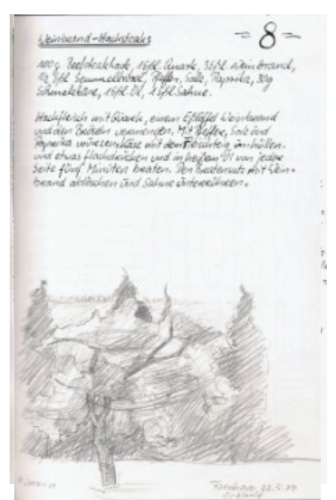 Weinbrand-Hacksteaks
= 8 =
100g Beefsteakhack, 1 Eßl. Quark, 3 Eßl. Weinbrand,
1/2 Eßl. Semmelbrösel, Pfeffer, Salz, Paprika, 30g
Schmelzkäse, 1 Eßl. Öl, 1 Eßl. Sahne.
Hackfleisch mit Quark, einem Eßlöffel Weinbrand
und den Bröseln vermengen. Mit Pfeffer, Salz und
Paprika würzen. Käse mit dem Fleischteig umhüllen.
und etwas flachdrücken und in heißem Öl von jeder
Seite fünf Minuten braten. Den Bratensatz mit Wein-
brand ablöschen und Sahne unterrühren.